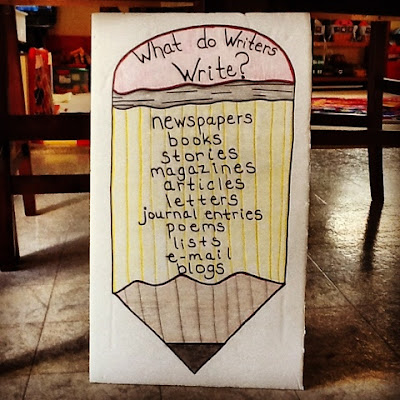 What do Writers
Write?
newspapers
books
stories
magazines
articles
letters
journal entries
poems
lists
e-mail
blogs